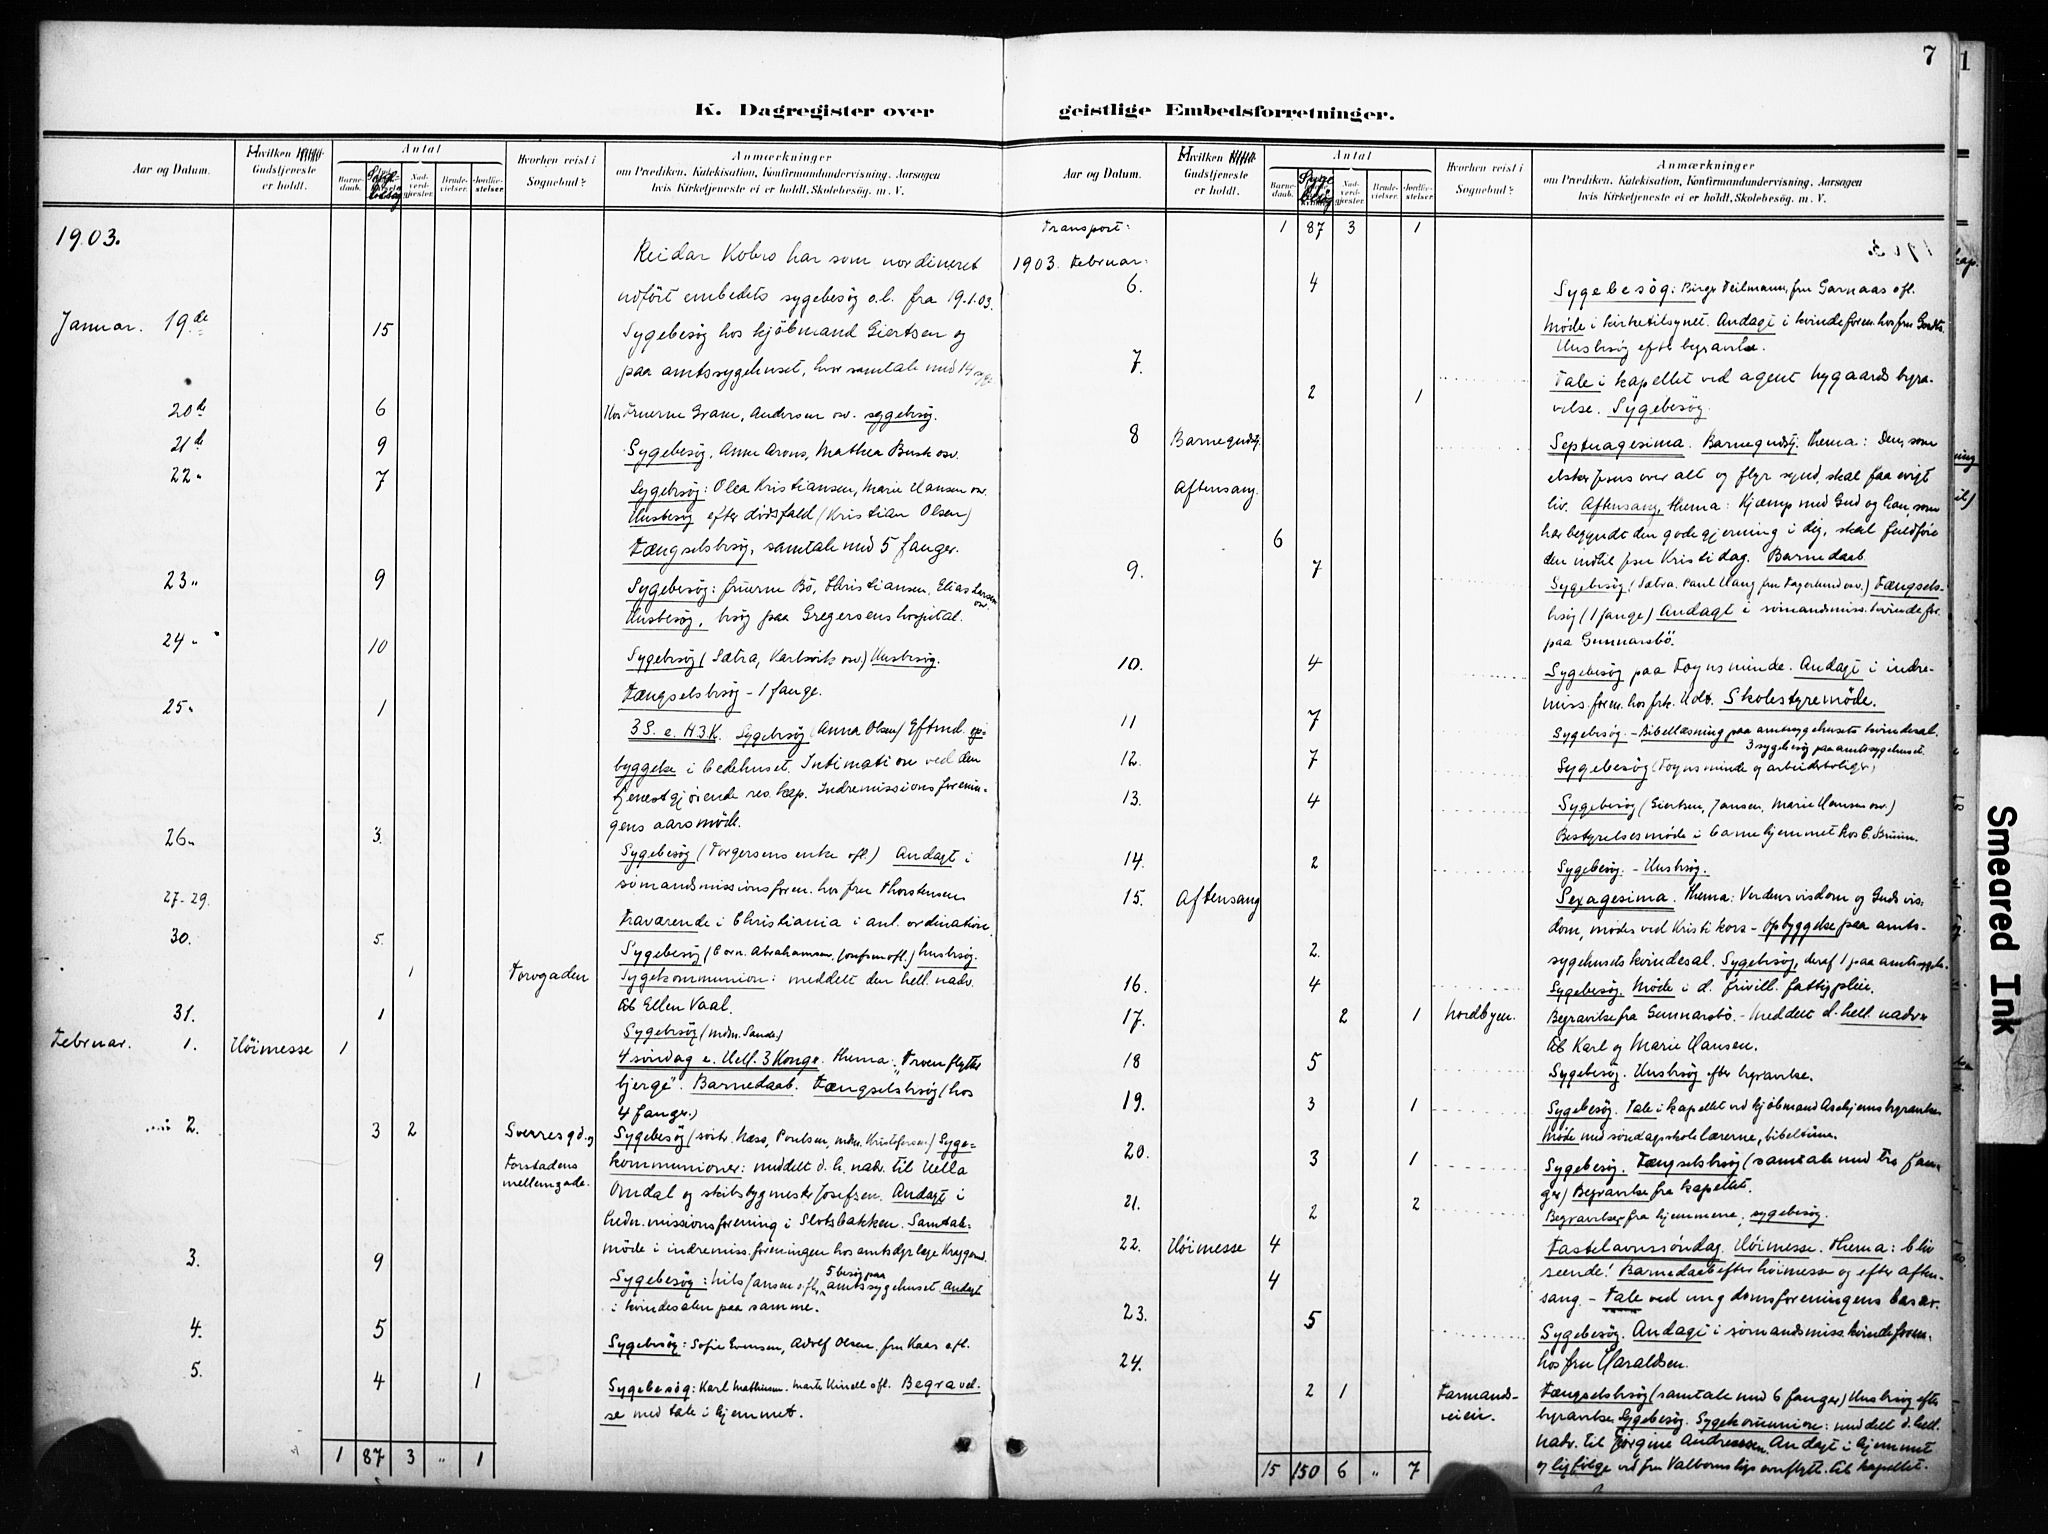 7
1
K. Dagregister over geistlige Embedsforretninger.
Aar og Datum.
Hvilken Gudstjeneste er holdt.
Antal
Barnedaab.
Sygebesøg
Nadverdgjester.
Brudevielser.
Jordfæstelser.
Hvorhen reist i Sognebud?
Anmærkninger
om Prædiken, Katekisation, Konfirmandundervisning, Aarsagen
hvis Kirketjeneste ei er holdt, Skolebesøg, m. V.
1903.
Reidar Kobro har som uordineret
udført embedets sygebesøg o.l. fra 19.1.03.
Januar. 19de 15 Sygebesøg hos kjøbmand Giertsen og
paa amtssygehuset, hvor samtale med 14 syge
20de 6 Hos Fruerne Gram, Andersen osv. sygebesøg.
21de 9 Sygebesøg, Anne Arons, Mathea Busk osv.
22 " 7 Sygebesøg: Olea Kristiansen, Marie Hansen osv.
Husbesøg efter dødsfald (Kristian Olsen)
Fængselsbesøg, samtale med 5 fanger.
23 " 9 Sygebesøg: fruerne Bö, Christiansen, Elias Larsen osv.
Husbesøg, besøg paa Gregersens hospital.
24 " 10 Sygebesøg (Sætra, Karlsvik osv.) Husbesøg.
Fængselsbesøg - 1 fange.
25 " 1 3 S. e. H.3.K. Sygebesøg (Anna Olsen) Eftmd. op-
byggelse i bedehuset. Intimation ved den
tjenestgjørende res. kap. Indremissionsforenin-
gens aarsmøde.
26 " 3. Sygebesøg (Torgersens enke ofl.) Andagt i
sømandsmissionsforen. hos fru Thorstensen
27-29. Fraværende i Christiania i anl. ordination.
30. 5. Sygebesøg (Corn. Abrahamsen, Josefsen ofl.) husbesøg.
1 Torvgaden Sygekommunion: meddelt den hell. nadv.
til Ellen Vaal.
31. 1 Sygebesøg (mdm. Sande)
Februar. 1. Höimesse 1 4 søndag e. Hell. 3 Konge. Thema: "Troen flytter
bjerge". Barnedaab. Fængselsbesøg (hos
4 fanger.)
2. 3 2 Sverresgd. og Sygebesøg (søstr. Næss, Poulsen, mdm. Kristofersen) Syge-
Forstadens kommunioner: meddelt d. h. nadv. til Hella
mellemgade. Omdal og skibsbygmester Josefsen. Andagt i
hedn. missionsforening i Slotsbakken. Samtale-
møde i indremiss. foreningen hos amtsdyrlæge
3. 9 Sygebesøg: Nils Jansen ofl., 5 besøg paa amtssygehuset. Andagt
i kvindesalen paa samme.
4. 5 Sygebesøg: Sofie Evensen, Adolf Olsen, fru Kaas ofl.
5. 4 1 Sygebesøg: Karl Mathiesen, Marte Kinell ofl. Begravel-
se med tale i hjemmet.
1 87 3 " 1
Aar og Datum.
Hvilken Gudstjeneste er holdt.
Antal
Barnedaab.
Sygebesøg
Nadverdgjester.
Brudevielser.
Jordfæstelser.
Hvorhen reist i Sognebud?
Anmærkninger
om Prædiken, Katekisation, Konfirmandundervisning, Aarsagen
hvis Kirketjeneste ei er holdt, Skolebesøg, m. V.
Transport: 1 87 3 1
1903. Februar.
6. 4 Sygebesøg: Birgr. Veilmann, fru Garnaas ofl.
Møde i kirketilsynet. Andagt i kvindeforen. hos fru
Husbesøg efter begravelse.
7. 2 1 Tale i kapellet ved agent Nygaards begra-
velse. Sygebesøg.
8 Barnegudstj. Septuagesima. Barnegudstj. Thema: Den, som
elsker Jesus over alt og flyr synd, skal faa evigt
Aftensang. liv. Aftensang, thema: Kjæmp med Gud og han, som
har begyndt den gode gjerning i dig, skal fuldføre
6 den indtil Jesu Kristi dag. Barnedaab
9. 7 Sygebesøg (Sætra, Paul Haug, fru Fagerlund osv.) Fængsels-
besøg (1 fange) Andagt i sömandsmiss. kvindefor.
paa Gunnarsbö.
10. 4 Sygebesøg paa Foynsminde. Andagt i indre-
miss. foren. hos frk. Udt. Skolestyremöde.
11 7 Sygebesøg. - Bibellæsning paa amtssygehusets kvindesal.
3 sygebesøg paa amtssygehuset.
12. 7 Sygebesøg (Foynsminde og arbeiderboliger)
13. 4 Sygebesøg (Giertsen, Jansen, Marie Hansen osv.)
Bestyrelsesmøde i barnehjemmet hos C. Bruun.
14. 2 Sygebesøg. - Husbesøg.
15. Aftensang Sexagesima. Thema: Verdens visdom og Guds vis-
dom, mødes ved Kristi kors - Opbyggelse paa amts-
2. sygehusets kvindesal. Sygebesøg, deraf 1 paa amtssygeh.
16. 4 Sygebesøg. Møde i d. frivill. fattigpleie.
17. 2 1 Nordbyen. Begravelse fra Gunnarsbö. - Meddelt d. hell. nadv.
til Karl og Marie Hansen.
18 5 Sygebesøg. Husbesøg efter begravelse.
19. 3 1 Sygebesøg. Tale i kapellet ved kjøbmand Askjems begravelse.
Møde med søndagsskolelærerne, bibeltime.
20. 3 1 Sygebesøg. Fængselsbesøg (samtale med tre fan-
ger) Begravelse fra kapellet.
21. 2 2 Begravelser fra hjemmene, sygebesøg.
22. Höimesse 4 Fastelavnssøndag. Höimesse. Thema: bliv
4 seende! Barnedaab efter høimesse og efter aften-
sang. - Tale ved ungdomsforeningens basar.
23. 5 Sygebesøg. Andagt i sømandsmiss. kvindeforen.
hos fru Haraldsen.
24. 2 1 Farmands- Fængselsbesøg (samtale med 6 fanger) Husbesøg efter
veien. begravelse. Sygebesøg. Sygekommunion: meddelt d. hell.
nadv. til Jørgine Andreassen. Andagt i hjemmet
og ligfølge ved fru overflytt. til kapellet.
15 150 6 " 7
Smeared Ink